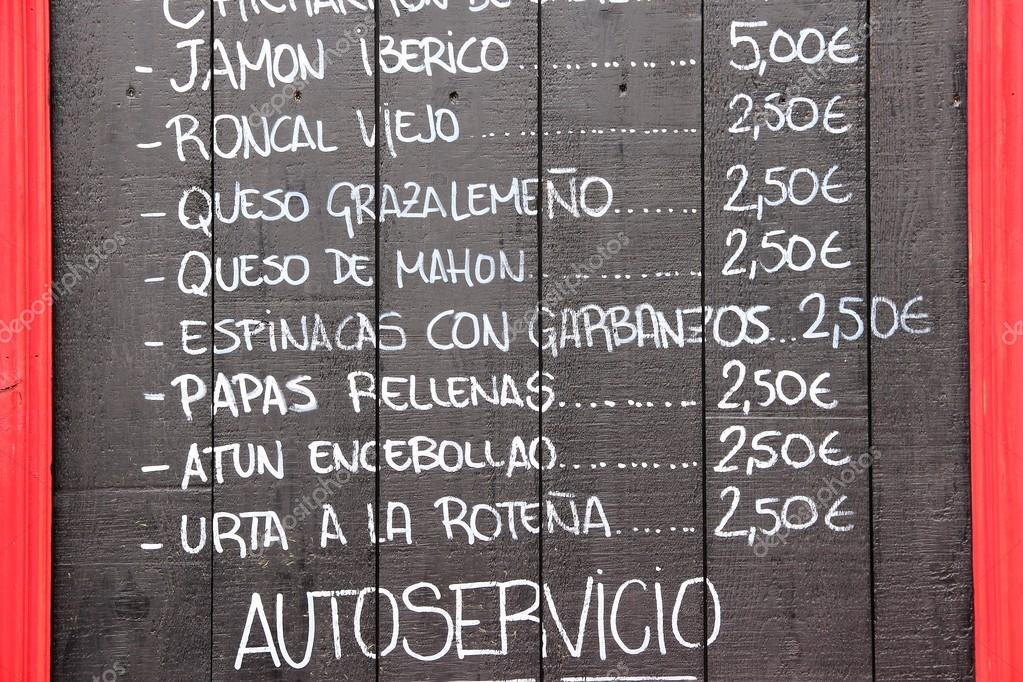 - JAMON IBERICO................ 5,00€
- RONCAL VIEJO .................... 2,50€
- QUESO GRAZALEMEÑO....... 2,50€
- QUESO DE MAHON................ 2,50€
- ESPINACAS CON GARBANZOS... 2,50€
- PAPAS RELLENAS............. 2,50€
- ATUN ENCEBOLLAO............ 2,50€
- URTA A LA ROTEÑA....... 2,50€
AUTOSERVICIO